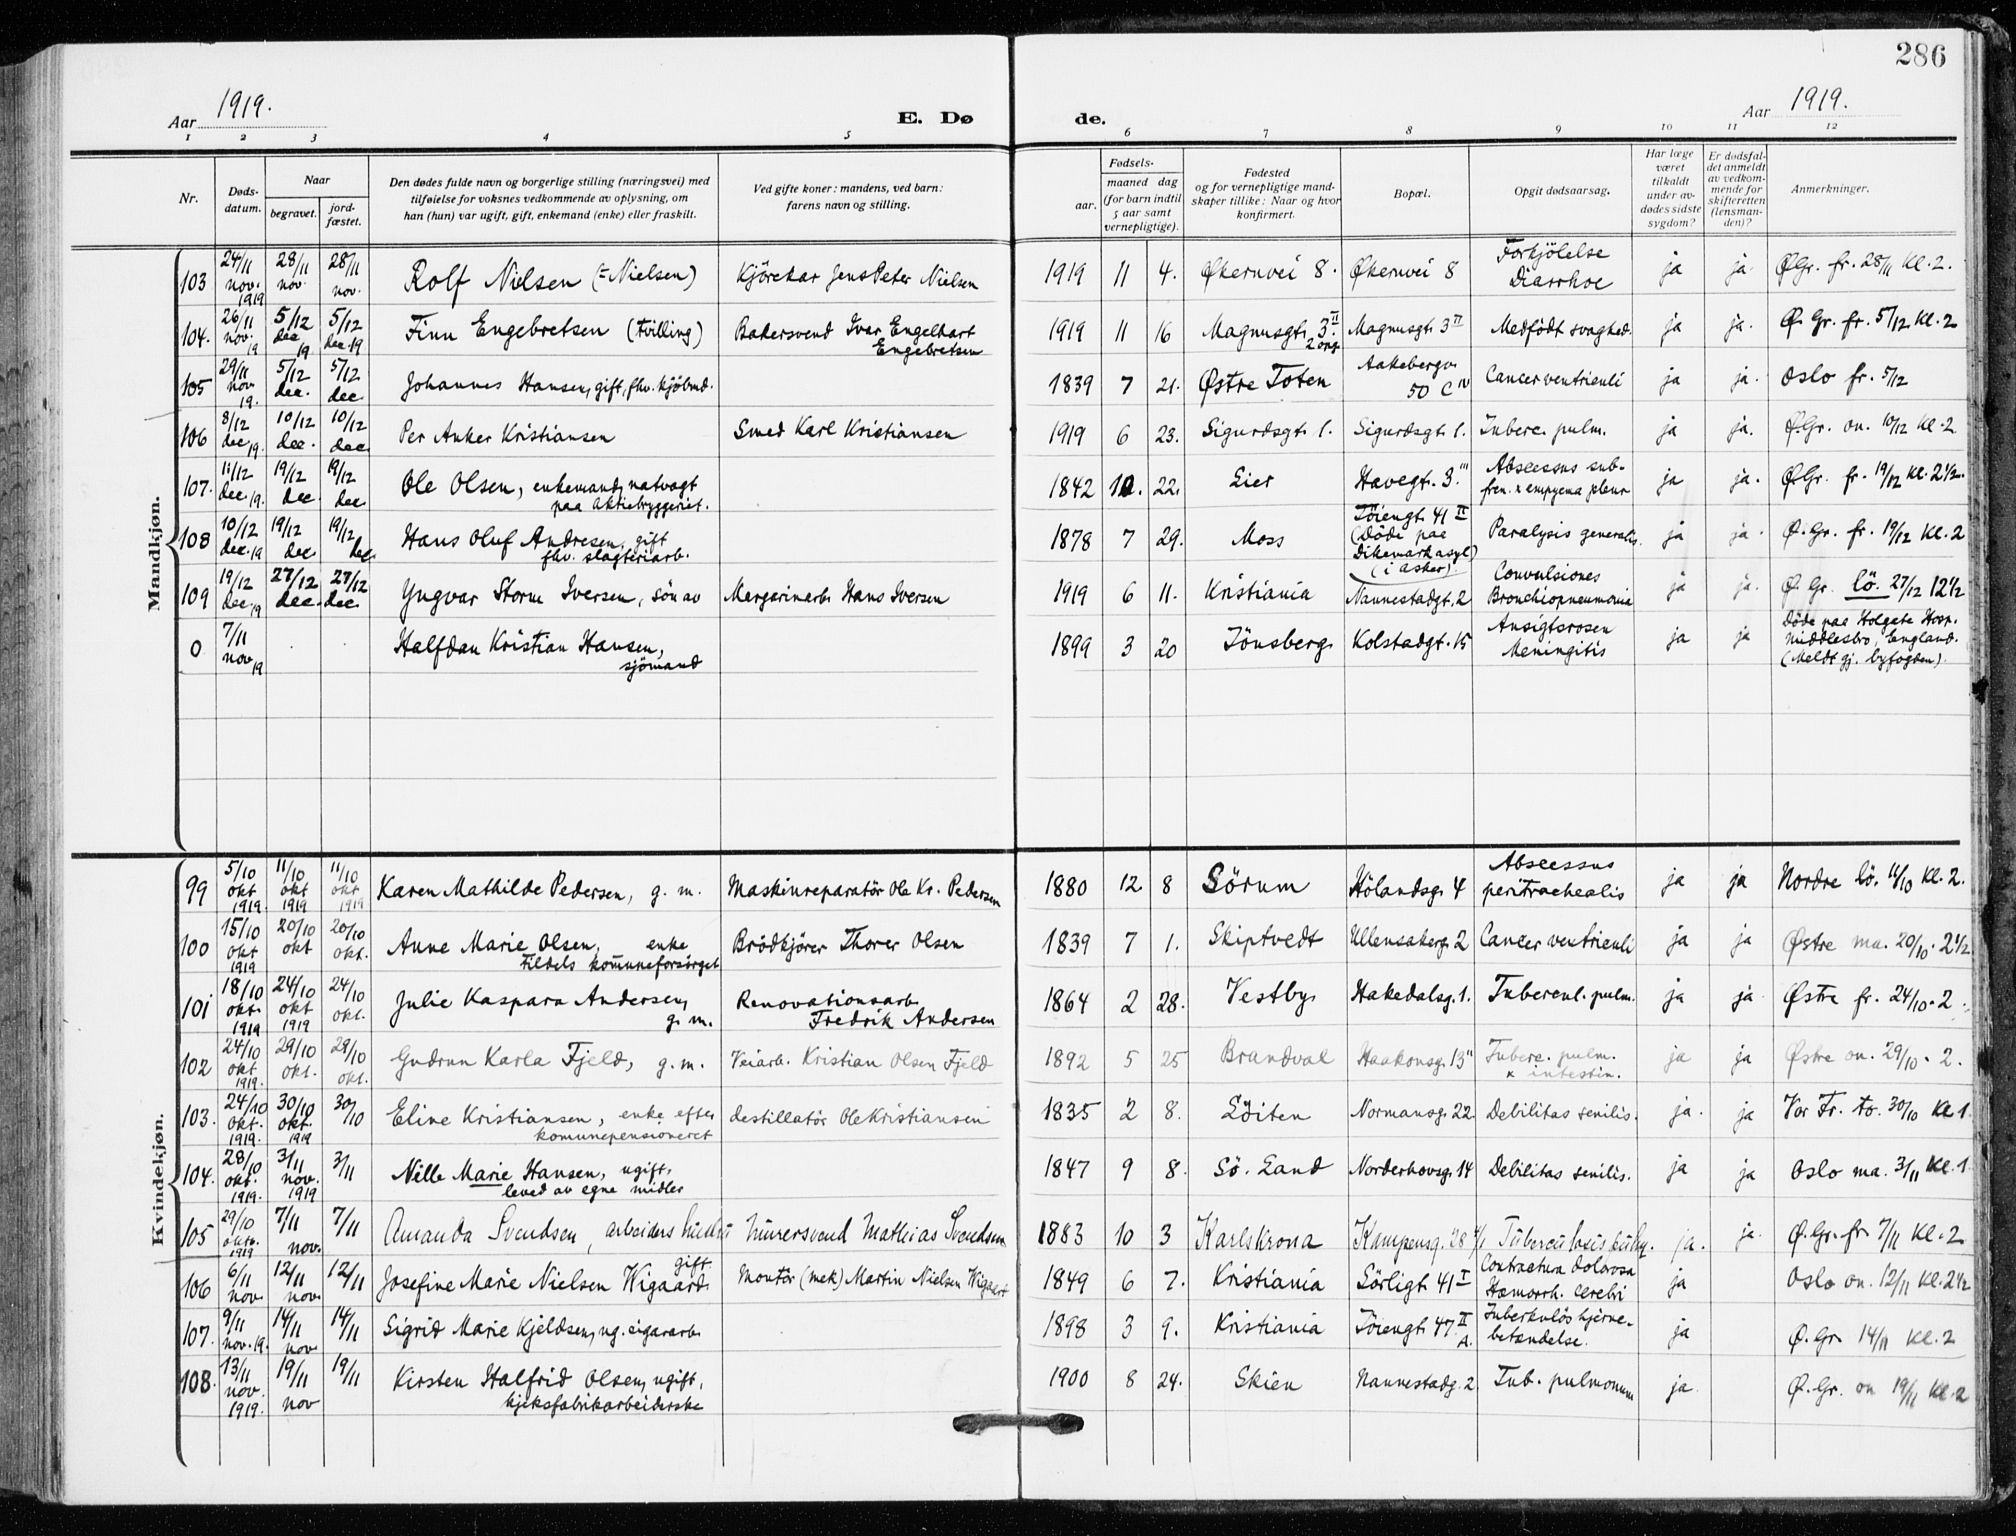 286
Aar 1919.
E. Dø de.
Aar 1919.
1 2 3 4 5 6 7 8 9 10 11 12
Nr. Døds-datum. Naar begravet. jord-fæstet. Den dødes fulde navn og borgerlige stilling (næringsvei) med tilføielse for voksnes vedkommende av oplysning, om han (hun) var ugift, gift, enkemand (enke) eller fraskilt. Ved gifte koner: mandens, ved barn: farens navn og stilling. Fødsels- aar. maaned dag (for barn indtil 5 aar samt vernepligtige). Fødested og for vernepligtige mandskaper tillike: Naar og hvor konfirmert. Bopæl. Opgit dødsaarsag. Har læge været tilkaldt under avdødes sidste sygdom? Er dødsfaldet anmeldt av vedkommende for skifteretten (lensmanden)? Anmerkninger.
Mandkjøn.
103 24/11 nov. 1919 28/11 nov. 28/11 nov. Rolf Nielsen (÷Nielsen) Kjörekar Jens Peter Nielsen 1919 11 4. Økernvei 8. Økernvei 8 Forkjölelse Diarrhoe ja ja. Ø.Gr. fr. 28/11 Kl. 2.
104. 26/11 nov. 19 5/12 dec 19. 5/12 dec. 19 Finn Engebretsen (tvilling) Bakersvend Ivar Engelhart Engebretsen 1919 11 16 Magnusgt. 3 II 2 opg. Magnusgt. 3 II Medfödt svaghed. ja ja. Ø. Gr. fr. 5/12 Kl. 2
105 29/11 nov 19. 5/12 dec. 5/12 dec Johannes Hansen, gift, fhv. kjöbmd. 1839 7 21. Østre Toten Aakebergv. 50 C IV Cancer ventriculi ja ja. Oslo fr. 5/12
106 8/12 dec 19. 10/12 dec. 10/12 dec Per Anker Kristiansen Smed Karl Kristiansen 1919 6 23. Sigurdsgt. 1. Sigurdsgt. 1. Tuberc. pulm. ja ja. Ø.Gr. on. 10/12 Kl. 2
107. 11/12 dec. 19. 19/12 dec. 19/12 dec Ole Olsen, enkemand, natvagt paa Aktiebryggeriet. 1842 10. 22. Lier Havegt. 3. III Abscessus subfren. x empyema pleur ja ja. Ø.Gr. fr. 19/12 Kl. 2 1/2.
108 10/12 dec. 19 19/12 dec 19/12 dec Hans Oluf Andresen, gift fhv. slagteriarb. 1878 7 29. Moss Töiengt. 41 II (döde paa Dikemark asyl) (i Asker). Paralysis generalis. ja ja. Ø.Gr. fr. 19/12 Kl. 2
109 19/12 dec. 19 27/12 dec. 27/12 dec. Yngvar Storm Iversen, sön av Margarinarb. Hans Iversen 1919 6 11. Kristiania Nannestadgt. 2 Convulsiones Bronchiopneumonia ja ja. Ø. Gr. lö. 27/12 12 1/2
0 7/11 nov 19 Halfdan Kristian Hansen, sjömand 1899 3 20 Tönsberg Kolstadgt. 15 Ansigtsrosen Meningitis ja ja Döde paa Holgate Hosp. Middlesbro, England. (Meldt gj. byfogden).
Kvindekjøn.
99 5/10 okt 1919. 11/10 okt 1919 11/10 okt 1919 Karen Mathilde Pedersen, g. m. Maskinreparatör Ole Kr. Pedersen 1880 12 8 Sörum Hölandsg. 4 Abscessus peritrachealis ja ja Nordre lö. 11/10 Kl. 2.
100 15/10 okt 1919 20/10 okt 20/10 okt. Anne Marie Olsen, enke tildels kommuneforsörget Brödkjörer Thorer Olsen 1839 7 1. Skiptvedt Ullensakerg. 2 Cancer ventriculi ja ja Østre ma. 20/10. 2 1/2
101 18/10 okt. 1919 24/10 okt 1919 24/10 okt. Julie Kaspara Andersen, g. m. Renovationsarb. Fredrik Andersen 1864 2 28. Vestby Hakedalsg. 1. Tubercul. pulm. ja ja Østre fr. 24/10. 2.
102 24/10 okt 1919. 29/10 okt. 29/10 okt. Gudrun Karla Fjeld, g. m. Veiarb. Kristian Olsen Fjeld 1892 5 25 Brandval Haakonsg. 13 II Tuberc. pulm. x intestin. ja ja Østre on. 29/10. 2.
103. 24/10 okt. 1919. 30/10 okt. 1919 30/10 Eline Kristiansen, enke efter kommunepensioneret destillatör Ole Kristiansen 1835 2 8. Löiten Normansg. 22 Debilitas senilis. ja. ja Vor Fr. to. 30/10 Kl 1.
104. 28/10 okt. 1919. 3/11 nov. 1919 3/11 Nille Marie Hansen, ugift, leved av egne midler 1847 9 8. Sö. Land Norderhovsg. 14 Debilitas senilis. ja ja Oslo ma. 3/11 Kl. 1.
105 29/10 oktr. 1919 7/11 nov. 7/11 Amanda Svendsen, arbeiders hustru Murersvend Mathias Svendsen 1883 10 3 Karlskrona Kampensg. 28 Tuberculosis pulm. ja. ja. Ø. Gr. fr 7/11 Kl. 2
106 6/11 nov. 12/11 nov. 12/11 Josefine Marie Nielsen Wigaard gift. Montör (mek) Martin Nielsen Wigaard 1849 6 7. Kristiania Sörligt. 41 I Contractura dolorosa Hæmorrh. cerebri ja Oslo on. 12/11 Kl. 2 1/2
107. 9/11 nov. 19. 14/11 nov 14/11 Sigrid Marie Kjeldsen, ug. cigararb. 1898 3 9. Kristiania Töiengt. 47 II A. Tuberkulös hjernebetændelse. ja Ø. Gr. 14/11 Kl. 2
108. 13/11 nov. 1919. 19/11 nov 19/11 Kirsten Halfrid Olsen, ugift, kjeksfabrikarbeiderske 1900 8 24. Skien Nannestadg. 2 Tub. pulmonum ja. Ø. Gr. on 19/11 Kl. 2